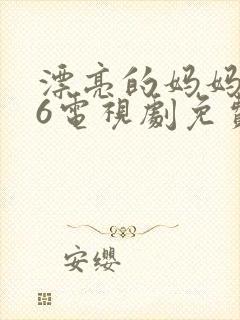 漂亮的妈妈
6電視劇免
安缨